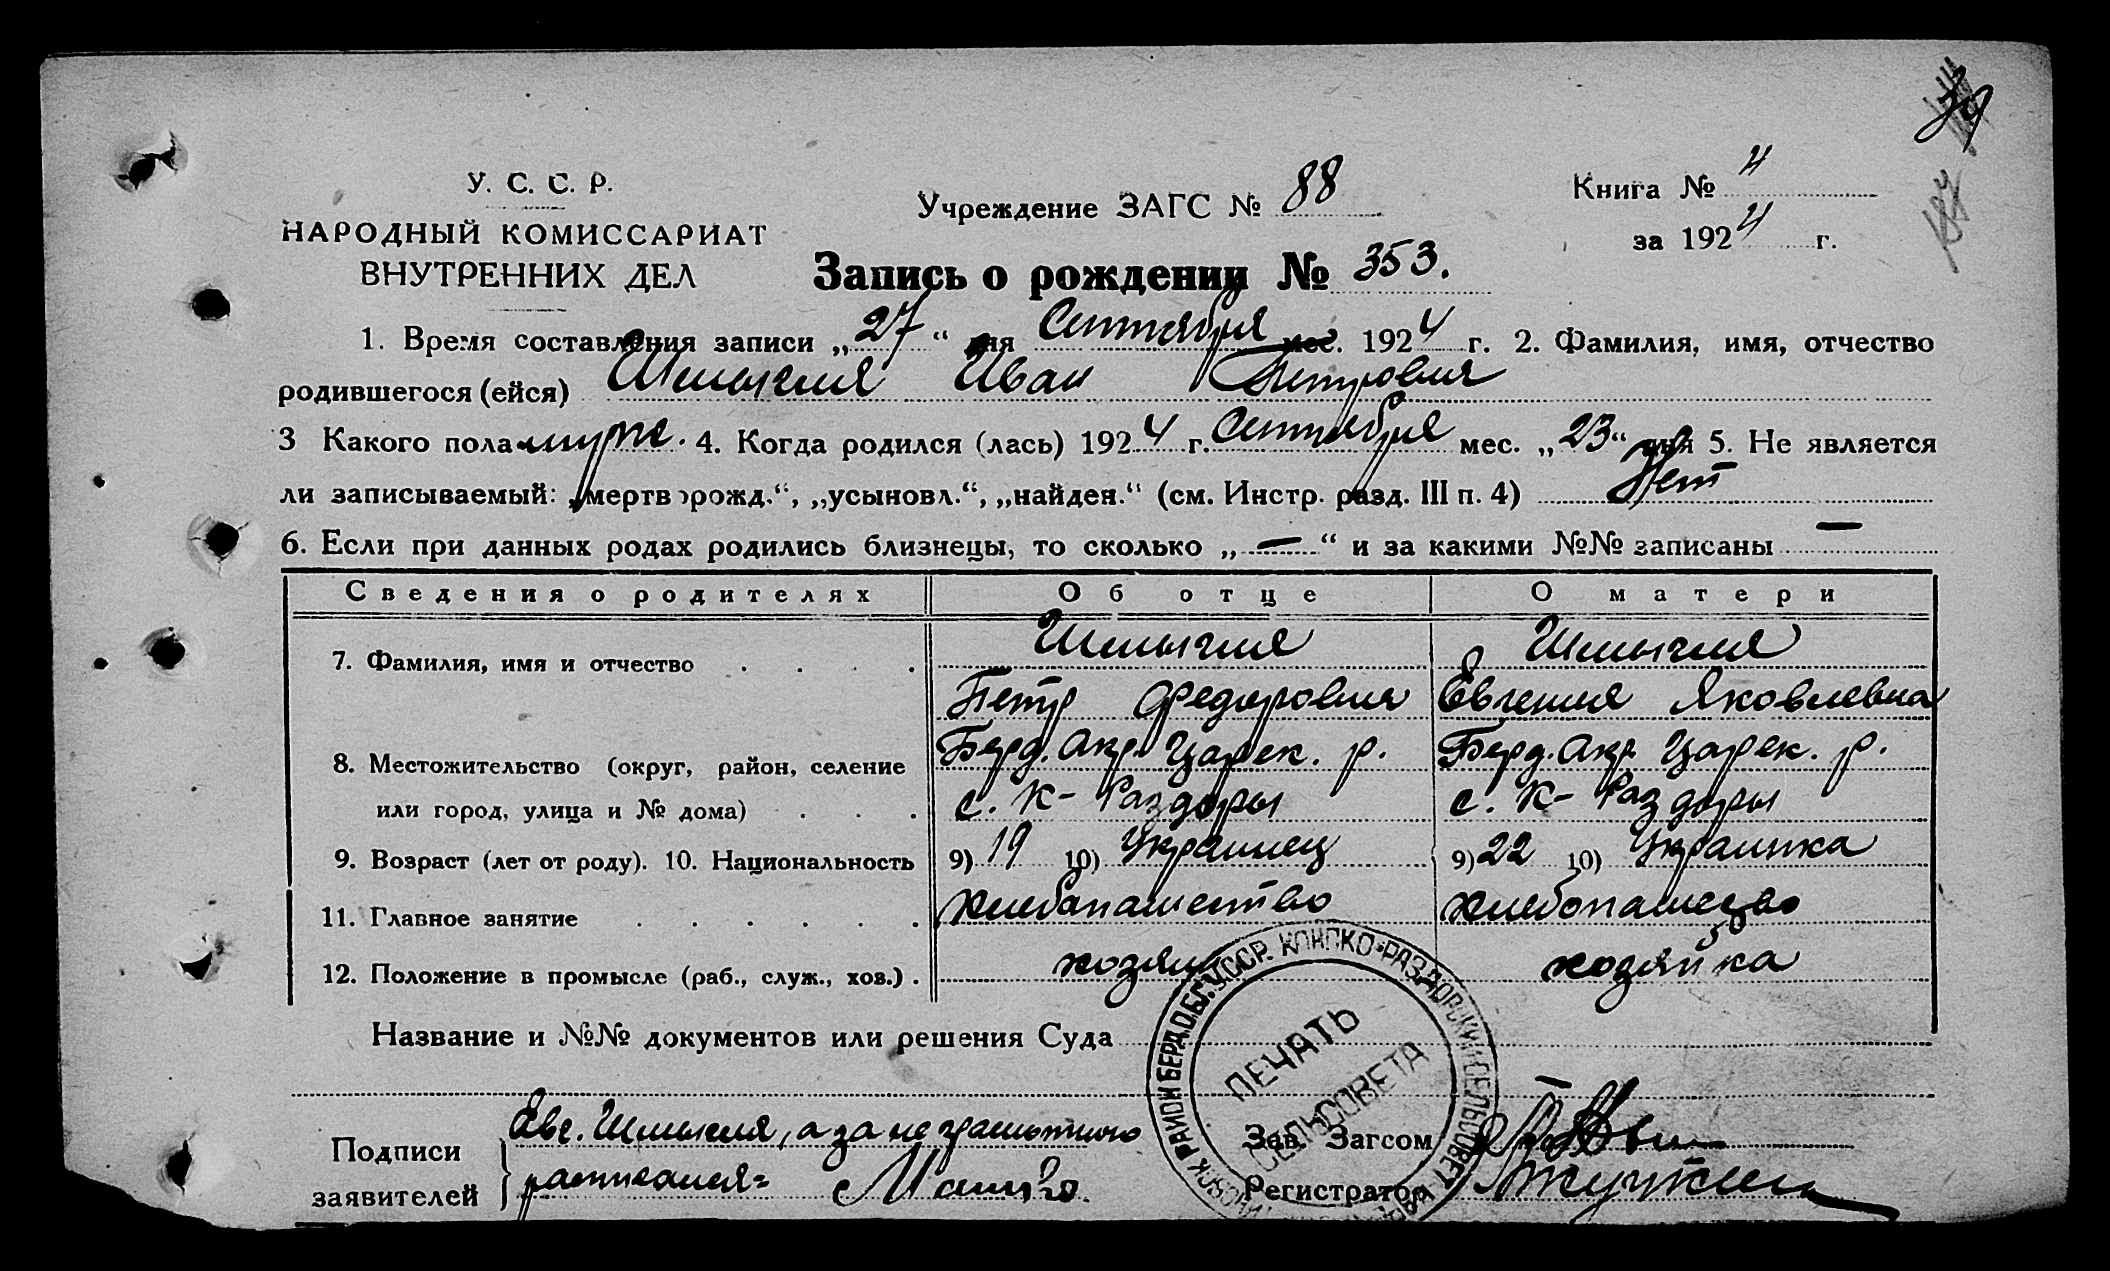 39
187
У. С. С. Р.
НАРОДНЫЙ КОМИССАРИАТ
ВНУТРЕННИХ ДЕЛ
Учреждение ЗАГС № 88
Книга № 4
за 1924 г.
Запись о рождении № 353.
1. Время составления записи „27“ дня Сентября мес. 1924 г. 2. Фамилия, имя, отчество
родившегося (ейся) Шмыгля Иван Петрович
3 Какого пола муж. 4. Когда родился (лась) 1924 г. Сентября мес. „23“ дня 5. Не является
ли записываемый: „мертворожд.“, „усыновл.“, „найден.“ (см. Инстр. разд. III п. 4) Нет
6. Если при данных родах родились близнецы, то сколько „—“ и за какими №№ записаны —
Сведения о родителях Об отце О матери
7. Фамилия, имя и отчество Шмыгля Шмыгля
Петр Федорович Евгения Яковлевна
8. Местожительство (округ, район, селение Берд. Окр. Царек. р. Берд. Окр. Царек. р.
или город, улица и № дома) с. К-Раздоры с. К-Раздоры
9. Возраст (лет от роду). 10. Национальность 9) 19 10) Украинец 9) 22 10) Украинка
11. Главное занятие хлебопашество хлебопашество
12. Положение в промысле (раб., служ., хоз.) хозяин хозяйка
Название и №№ документов или решения Суда
Подписи
заявителей
Евг. Шмыгля, а за не грамотного
расписался
Зав. Загсом
Регистратор
ПЕЧАТЬ
СЕЛЬСОВЕТА
РАЙОН БЕРД.ОБГ.УССР. КОНСКО-РАЗДОРСКИЙ СЕЛЬСОВЕТ